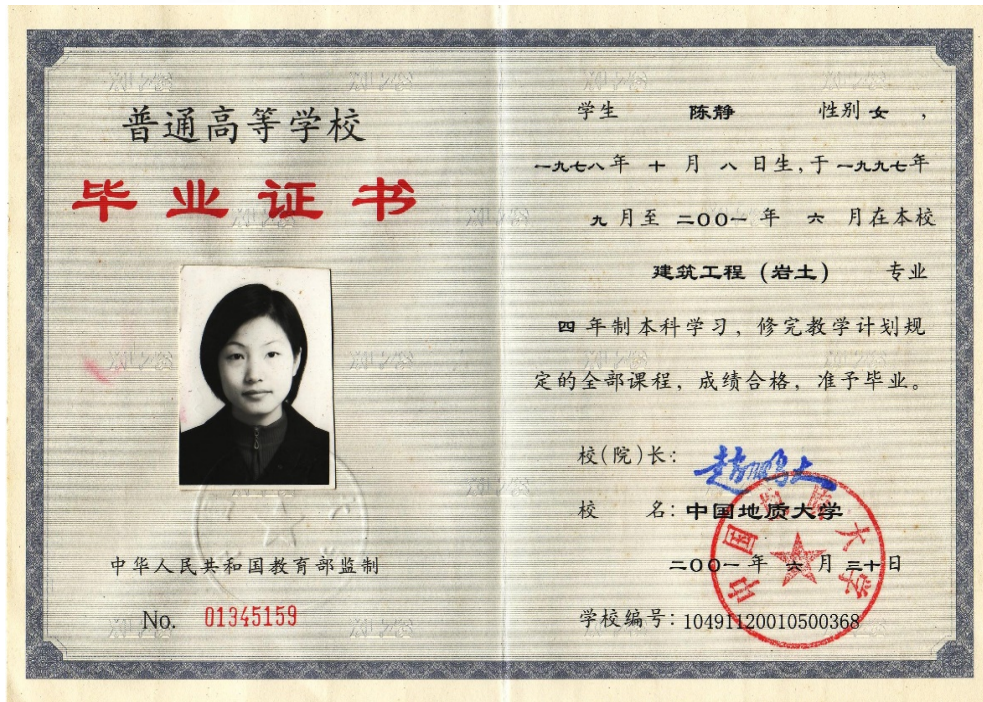 普通高等学校
毕业证书
中华人民共和国教育部监制
No. 01345159
学生 陈静 性别 女 ，
一九七八年 十 月 八 日生，于一九九七年
九 月至 二〇〇一 年 六 月在本校
建筑工程（岩土） 专业
四 年制本科学习，修完教学计划规
定的全部课程，成绩合格，准予毕业。
校(院)长： 赵鹏大
校 名：中国地质大学
二〇〇一 年 六 月 三十日
学校编号：10491120010500368
中国地质大学